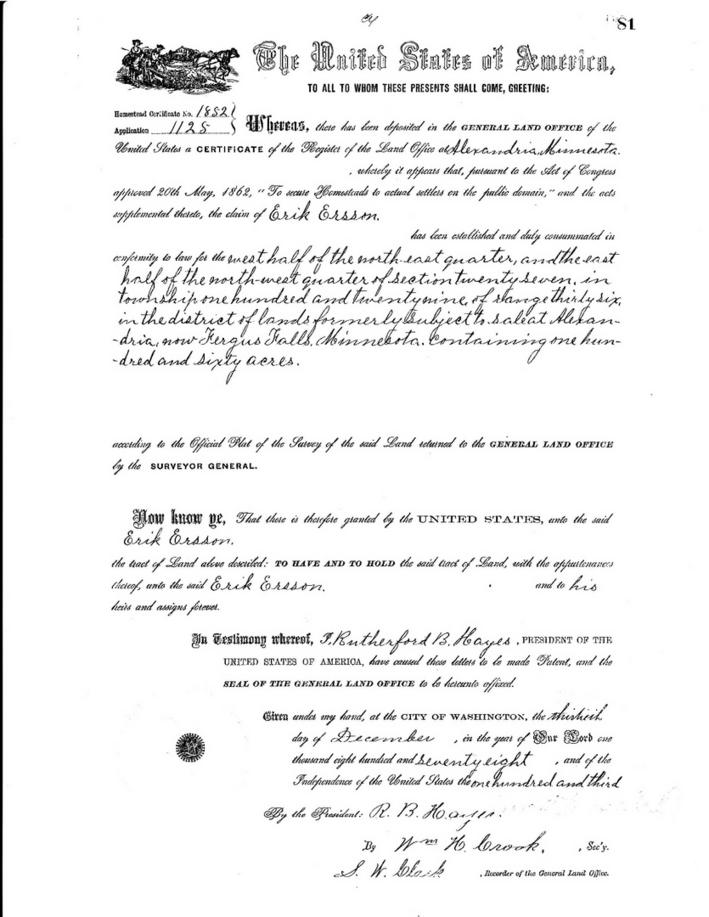 81
The United States of America,
TO ALL TO WHOM THESE PRESENTS SHALL COME, GREETING:
Homestead Certificate No. 1852
Application 1125 } Whereas, there has been deposited in the GENERAL LAND OFFICE of the
United States a CERTIFICATE of the Register of the Land Office at Alexandria, Minnesota.
, whereby it appears that, pursuant to the Act of Congress
approved 20th May, 1862, "To secure Homesteads to actual settlers on the public domain," and the acts
supplemental thereto, the claim of Erik Ersson.
has been established and duly consummated in
conformity to law for the west half of the north-east quarter, and the east
half of the north-west quarter of section twenty seven, in
township one hundred and twenty nine, of range thirty six,
in the district of lands formerly subject to sale at Alexan-
-dria, now Fergus Falls, Minnesota. Containing one hun-
-dred and sixty acres.
according to the Official Plat of the Survey of the said Land returned to the GENERAL LAND OFFICE
by the SURVEYOR GENERAL.
Now know ye, That there is therefore granted by the UNITED STATES, unto the said
Erik Ersson,
the tract of Land above described: TO HAVE AND TO HOLD the said tract of Land, with the appurtenances
thereof, unto the said Erik Ersson, and to his
heirs and assigns forever.
In Testimony whereof, I, Rutherford B. Hayes, PRESIDENT OF THE
UNITED STATES OF AMERICA, have caused these letters to be made Patent, and the
SEAL OF THE GENERAL LAND OFFICE to be hereunto affixed.
Given under my hand, at the CITY OF WASHINGTON, the thirtieth
day of December, in the year of Our Lord one
thousand eight hundred and seventy eight, and of the
Independence of the United States the one hundred and third
By the President: R. B. Hayes.
By Wm H. Crook, , Sec'y.
S. W. Clark , Recorder of the General Land Office.